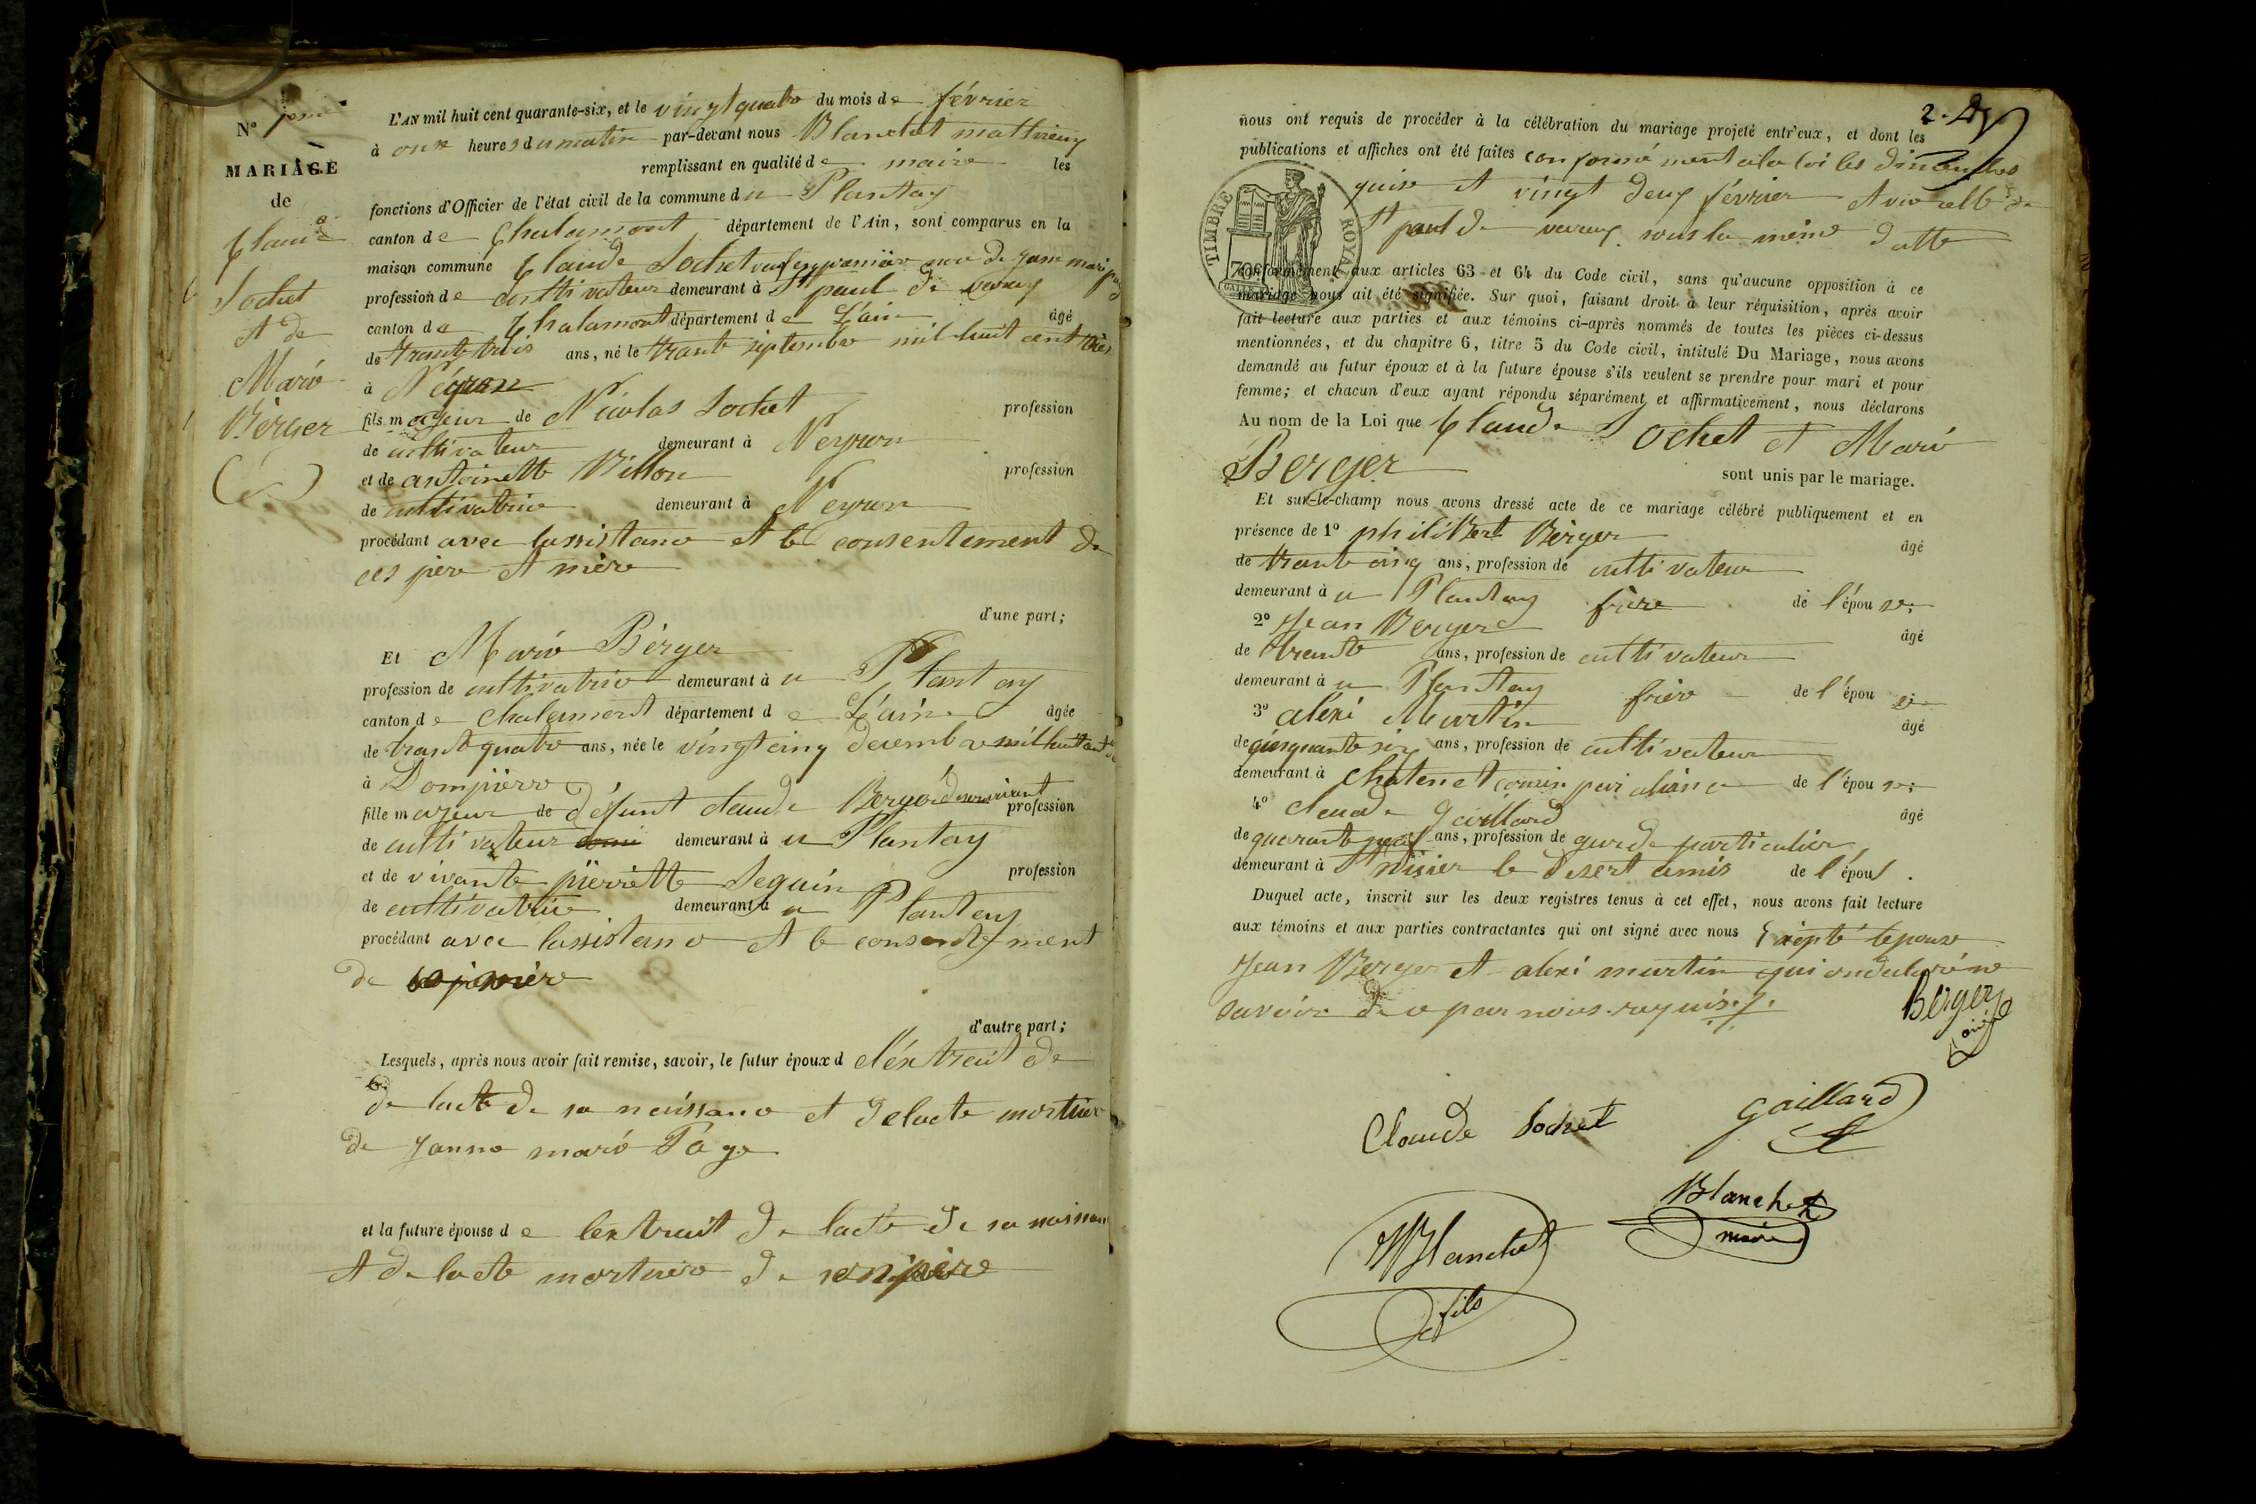 N°
MARIAGE
de
Claude
Sochet
et de
Marie
Berger
L'AN mil huit cent quarante-six, et le vingt quatre du mois de février
à onze heures du matin par-devant nous Blanchet mathieu
remplissant en qualité de maire les
fonctions d'Officier de l'état civil de la commune du Plantay
canton de Chalamont, département de l'Ain, sont comparus en la
maison commune Claude Sochet veuf en première noce de Janne marie
profession de cultivateur demeurant à St paul de varax
canton de Chalamont département de L'ain âgé
de trante trois ans, né le trante septembre mil huit cent
à Neyron
fils majeur de Nicolas Sochet profession
de cultivateur demeurant à Neyron
et de antoinette Billon profession
de cultivatrice demeurant à Neyron
procédant avec lassistance et le consentement de
ces père et mère
d'une part;
Et Marie Berger
profession de cultivatrice demeurant à u Plantay
canton de Chalamont département de L'ain âgée
de trant quatre ans, née le vingt cinq decembre mil huit cent
à Dompierre
fille majeur de défunt claude Berger profession
de cultivateur demeurant à u Plantay
et de vivante pierrette Seguin profession
de cultivatrice demeurant à u Plantay
procédant avec lassistance et le consentement
de
d'autre part;
Lesquels, après nous avoir fait remise, savoir, le futur époux d el'éxtrait de
de lacte de sa naissance et de lacte mortuere
de Janne marie Page
et la future épouse de lextrait de lacte de sa naissan
et de lacte mortuere de son père
2.
nous ont requis de procéder à la célébration du mariage projeté entr'eux, et dont les
publications et affiches ont été faites conformément a la loi les dimanches
quinze et vingt deux février et
St paul de varax sous la même datte
TIMBRE ROYAL
70c
conformément aux articles 63 et 64 du Code civil, sans qu'aucune opposition à ce
mariage nous ait été signifiée. Sur quoi, faisant droit à leur réquisition, après avoir
fait lecture aux parties et aux témoins ci-après nommés de toutes les pièces ci-dessus
mentionnées, et du chapitre 6, titre 5 du Code civil, intitulé Du Mariage, nous avons
demandé au futur époux et à la future épouse s'ils veulent se prendre pour mari et pour
femme; et chacun d'eux ayant répondu séparément et affirmativement, nous déclarons
Au nom de la Loi que Claude Sochet et Marie
Berger
sont unis par le mariage.
Et sur-le-champ nous avons dressé acte de ce mariage célébré publiquement et en
présence de 1° philiBert Berger âgé
de trante cinq ans, profession de cultivateur
demeurant à u Plantay frère de l'épouse;
2° Jean Berger âgé
de trente ans, profession de cultivateur
demeurant à u Plantay frère de l'épouse
3° aléxi Martin âgé
de cinquante six ans, profession de cultivateur
demeurant à Chatenet cousin par aliance de l'épouse;
4° claude Gaillard âgé
de quarante neuf ans, profession de garde particulier
demeurant à St nisier le desert amis de l'épou.
Duquel acte, inscrit sur les deux registres tenus à cet effet, nous avons fait lecture
aux témoins et aux parties contractantes qui ont signé avec nous Exepté lepouse
Jean Berger et aléxi martin qui on declaré ne
savoir de ce par nous requis
Berger
Claude Sochet
Gaillard
Blanchet
maire
Blanchet
fils